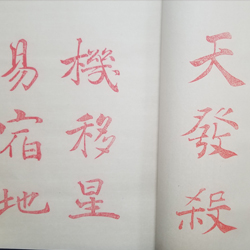 天發殺
機移星
易宿地